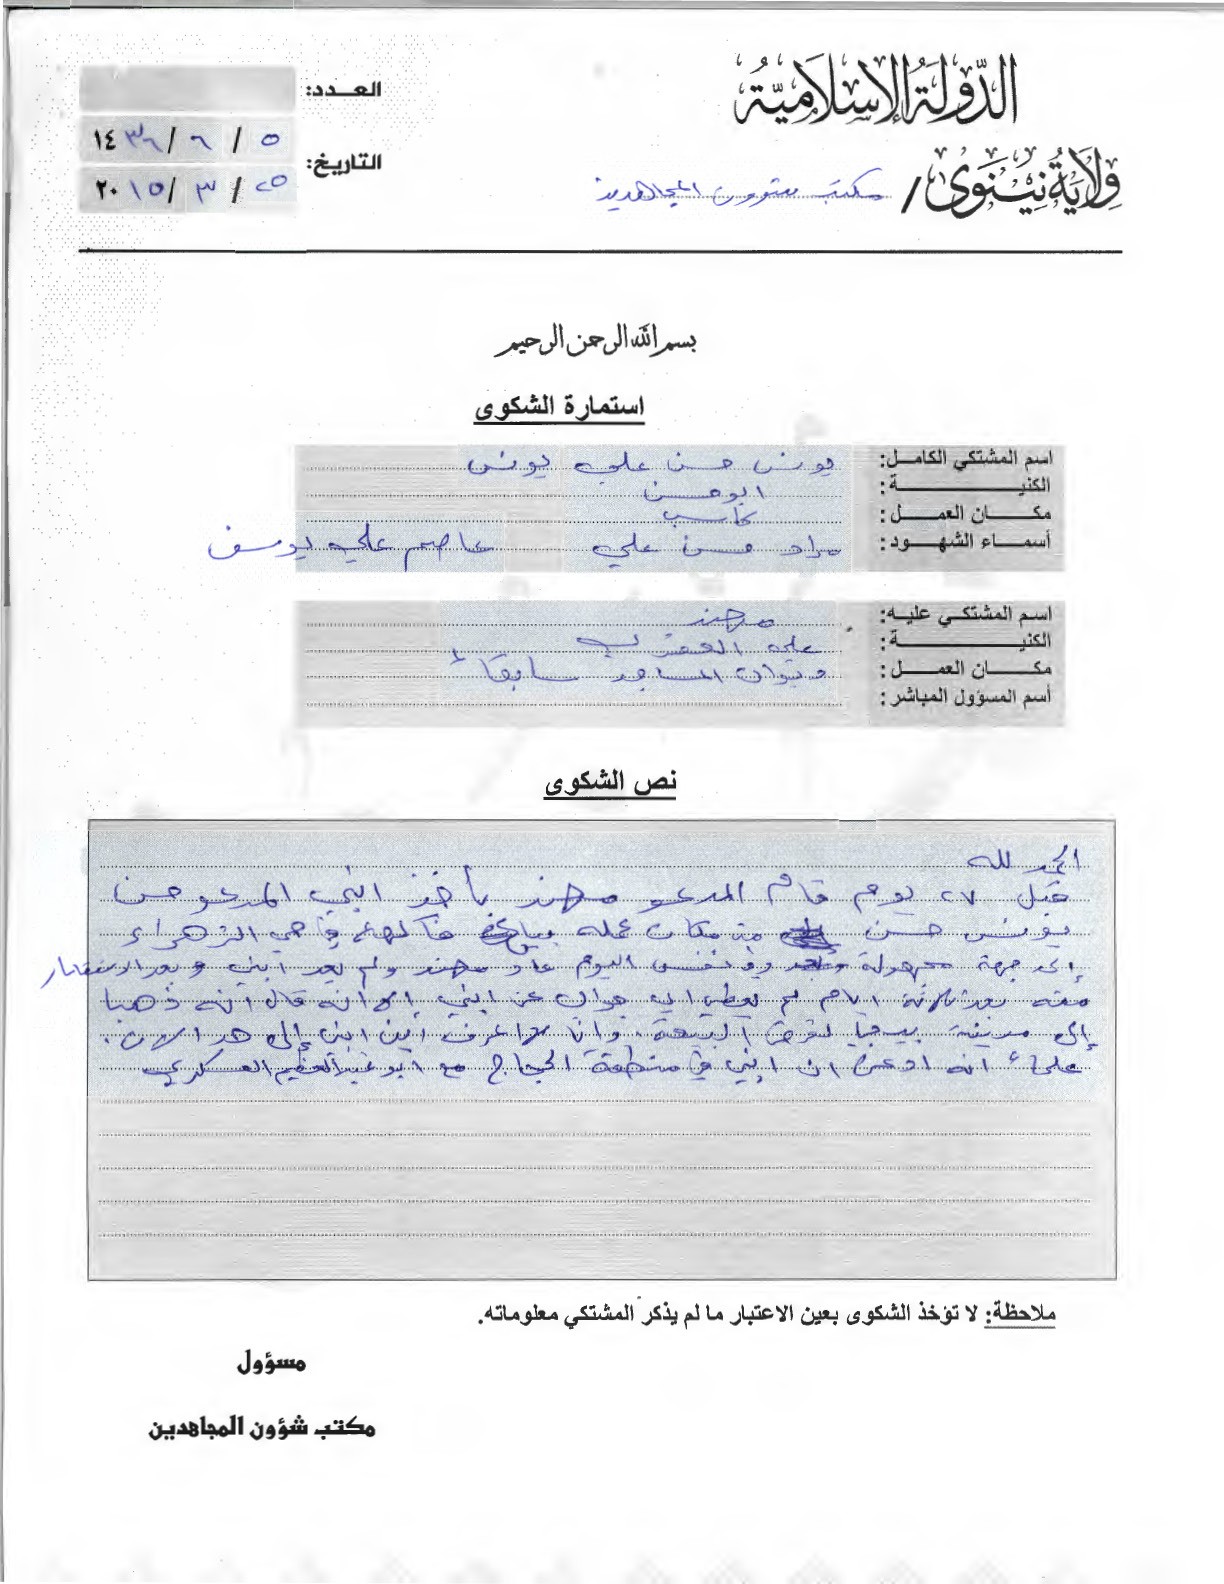 الدولة الإسلامية
ولاية نينوى / مكتب شؤون المجاهدين
العدد:
التاريخ: ٥ / ٦ / ١٤٣٦
٢٥ / ٣ / ٢٠١٥
بسم الله الرحمن الرحيم
استمارة الشكوى
اسم المشتكي الكامل: يونس حسن علي يونس
الكنية: ابو حسن
مكان العمل: كاسب
أسماء الشهود: مراد حسن علي عاصم علي يوسف
اسم المشتكي عليه: مهند
الكنية: علي
مكان العمل: ديوان المساجد سابقاً
أسم المسؤول المباشر:
نص الشكوى
الحمد لله
قبل ٢٧ يوم قام المدعو مهند بأخذ ابني المدعو حسن
يونس حسن من مكان عمله بياع فاكهة في حي الزهراء
إلى جهة مجهولة وفي نفس اليوم عاد مهند ولم يعد ابني وبعد الاستفسار
منه بعد ثلاثة ايام لم يعطي اي جواب عن ابني إلا انه قال انه ذهبا
إلى مدينة بيجي لغرض البيعة. وانا لا اعرف اين ابني إلى هذا الان.
علماً انه ادعى ان ابني في منطقة الحجاج مع ابو عبدالعظيم العسكري
ملاحظة: لا تؤخذ الشكوى بعين الاعتبار ما لم يذكر المشتكي معلوماته.
مسؤول
مكتب شؤون المجاهدين